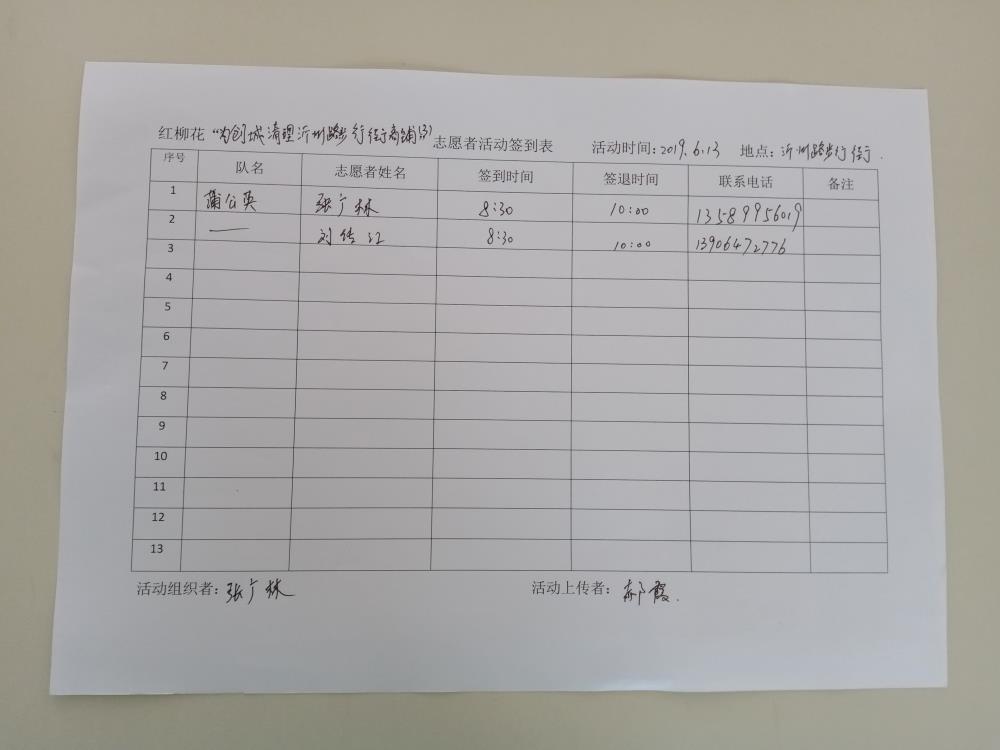 红柳花“为创城清理沂州路步行街商铺(3) 志愿者活动签到表 活动时间:2019.6.13 地点:沂州路步行街.
序号 队名 志愿者姓名 签到时间 签退时间 联系电话 备注
1 蒲公英 张广林 8:30 10:00 13589956019
2 — 刘传江 8:30 10:00 13906472776
3
4
5
6
7
8
9
10
11
12
13
活动组织者:张广林 活动上传者:郝霞.